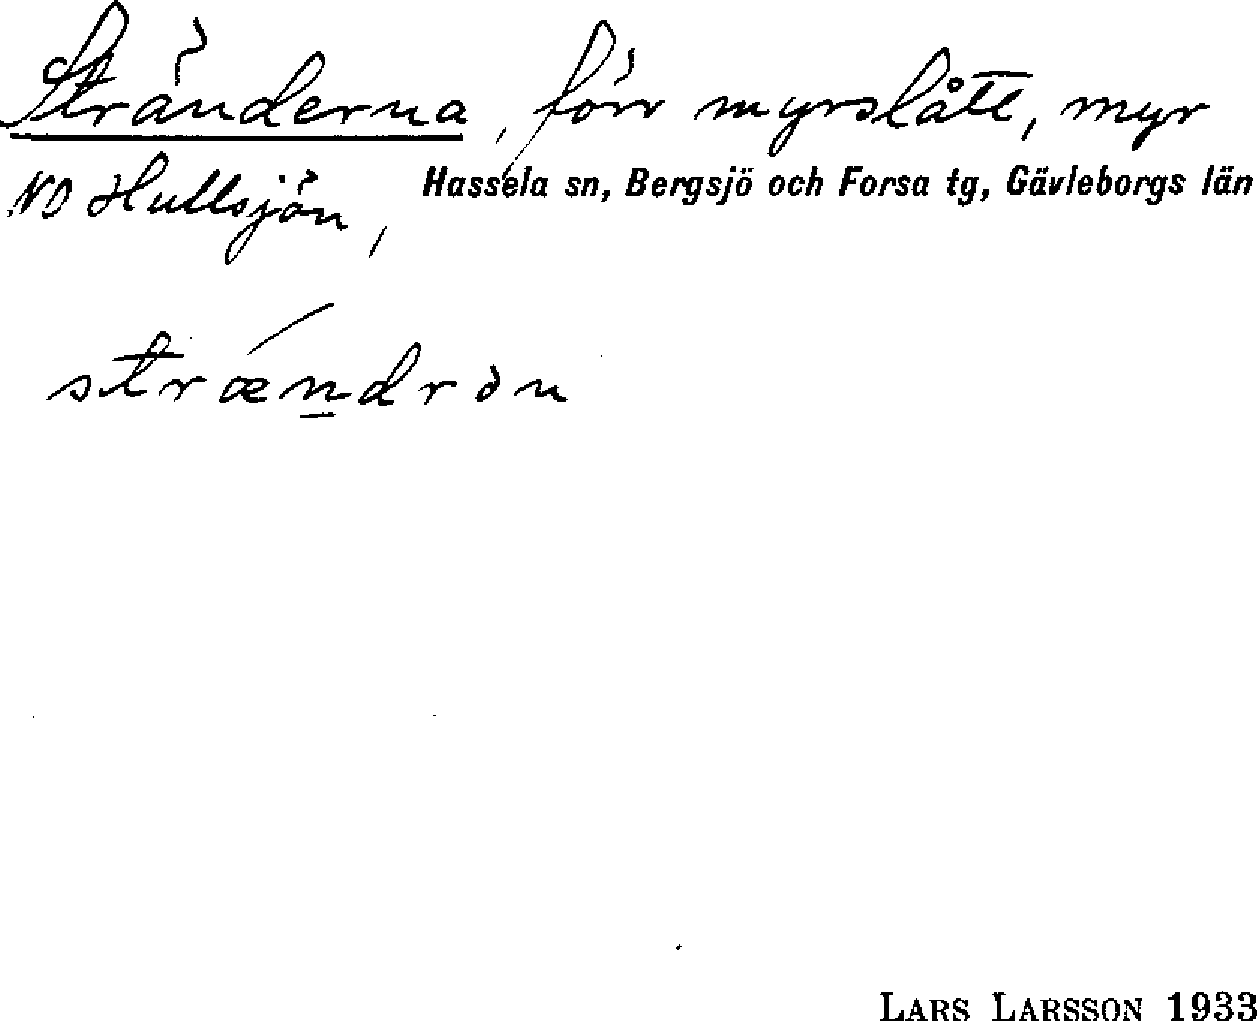 Stränderna, förr myrslått, myr
NO Hullsjön, Hassela sn, Bergsjö och Forsa tg, Gävleborgs län
strǽn̲drɘn
LARS LARSSON 1933